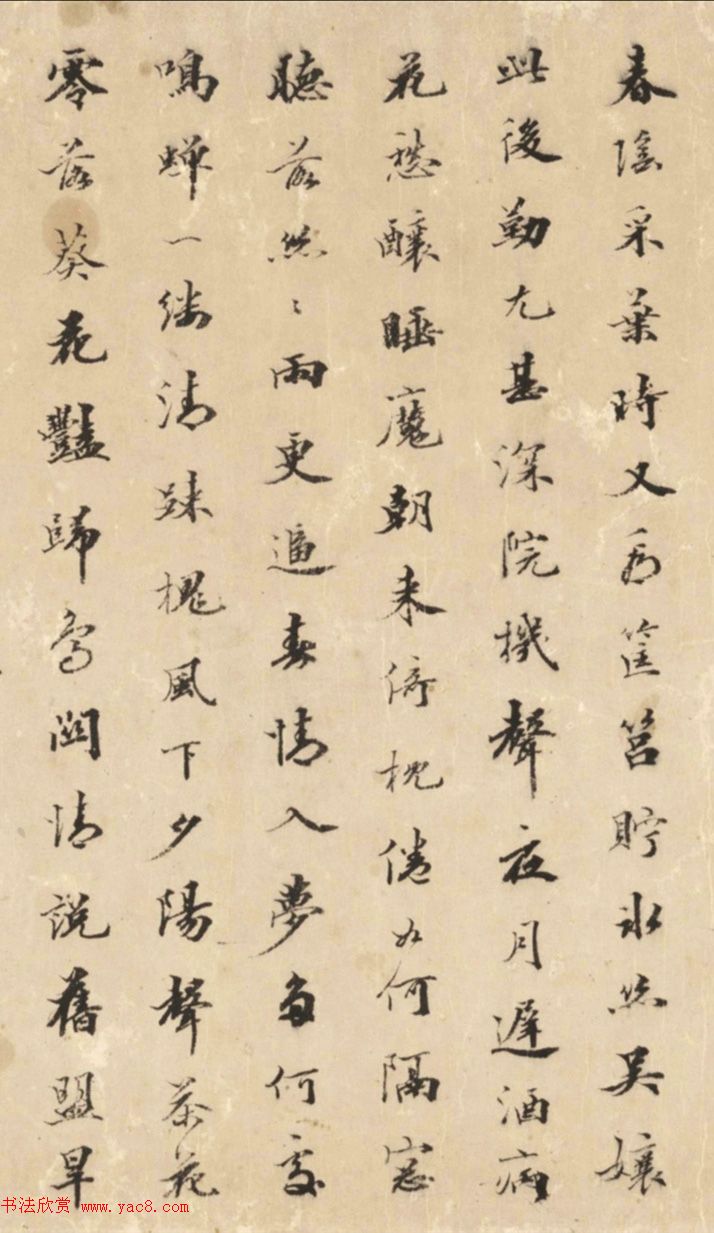 春陰采葉時又為筐筥貯冰絲吳孃
此後勤尤甚深院機聲夜月遲酒病
花愁釀睡魔朝來倚枕倦如何隔窓
聽落絲〻雨更逼春情入夢多何處
鳴蟬一縷清踈槐風下夕陽聲茶花
零落葵花豔歸鳥關情説舊盟早
书法欣赏 www.yac8.com